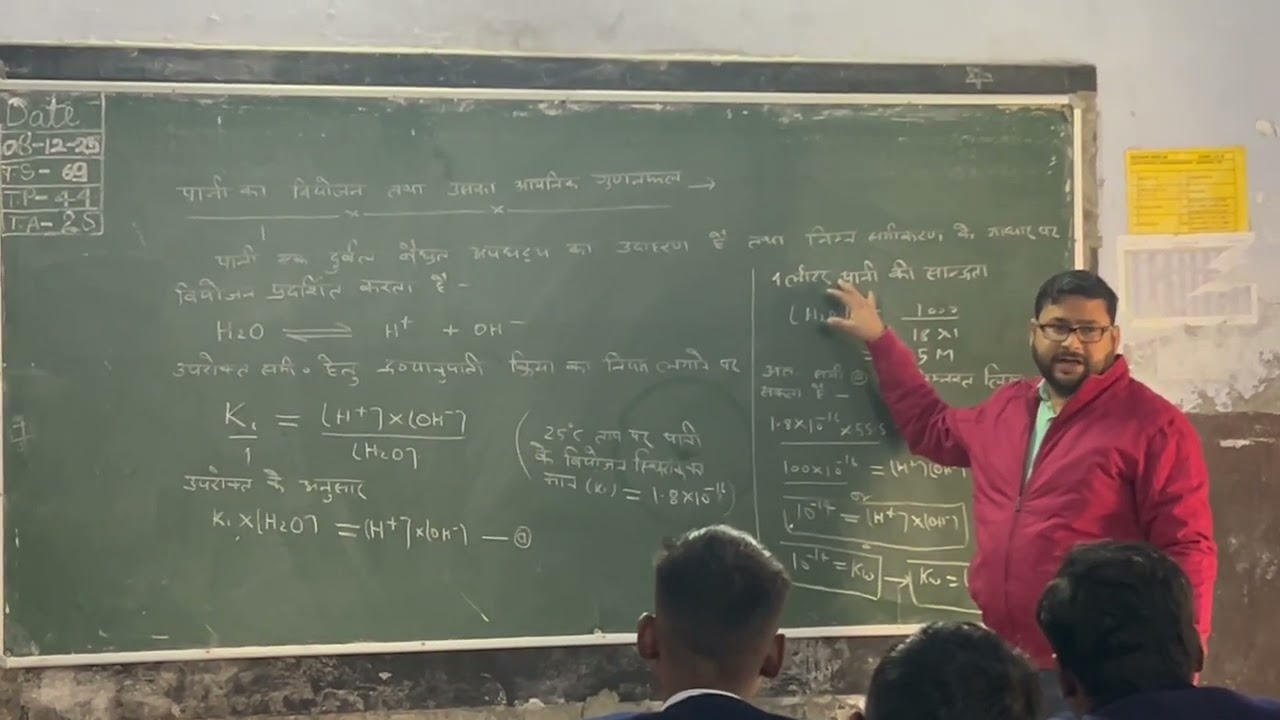 Date
08-12-25
T.S- 69
T.P- 44
T.A- 25
पानी का वियोजन तथा उसका आयनिक गुणनफल →
पानी एक दुर्बल वैधुत अपघट्य का उदाहरण है तथा निम्न समीकरण के आधार पर
वियोजन प्रदर्शित करता है -
H2O ⇌ H⁺ + OH⁻
उपरोक्त समी० हेतु द्रव्यानुपाती क्रिया का नियम लगाने पर
K₁/1 = [H⁺]×[OH⁻]/[H2O]
(25°C ताप पर पानी
के वियोजन स्थिरांक का
मान (K₁) = 1.8×10⁻¹⁶)
उपरोक्त के अनुसार
K₁×[H2O] = [H⁺]×[OH⁻] — ⓐ
1 लीटर पानी की सान्द्रता
1000
18×1
5 M
अतः समी
सकता है -
1.8×10⁻¹⁶×55.5
100×10⁻¹⁶ = [H⁺][OH⁻
or
10⁻¹⁴ = [H⁺]×[OH⁻]
10⁻¹⁴ = Kw → Kw =